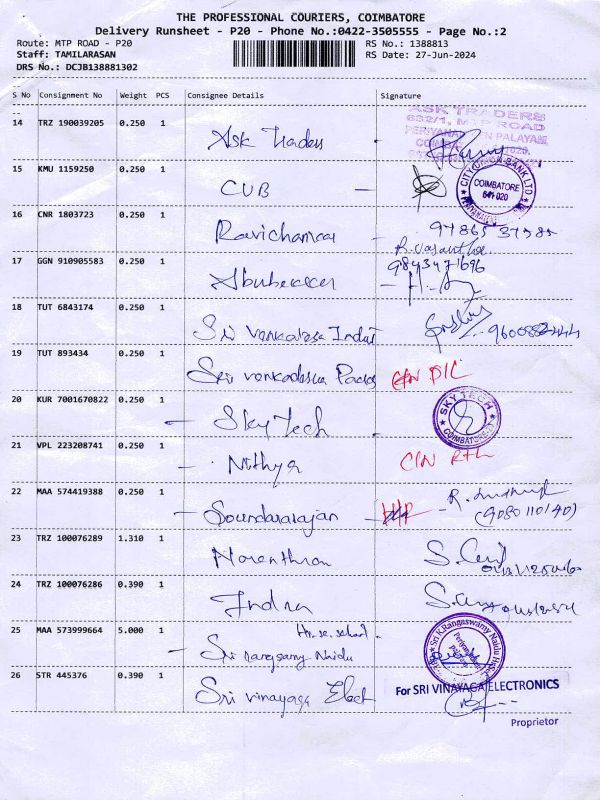 THE PROFESSIONAL COURIERS, COIMBATORE
Delivery Runsheet - P20 - Phone No.:0422-3505555 - Page No.:2
Route: MTP ROAD - P20
RS No.: 1388813
Staff: TAMILARASAN
RS Date: 27-Jun-2024
DRS No.: DCJB138881302
S No Consignment No Weight PCS Consignee Details Signature
14 TRZ 190039205 0.250 1 Ask Traders
ASK TRADERS
632/1, MTP ROAD
15 KMU 1159250 0.250 1 CUB
CITY UNION BANK LTD
COIMBATORE
641 020
16 CNR 1803723 0.250 1
17 GGN 910905583 0.250 1 Abubecker
9843471696
18 TUT 6843174 0.250 1 Sri Venkatesa
19 TUT 893434 0.250 1 Sri
20 KUR 7001670822 0.250 1 Sky Tech
SKY TECH
COIMBATORE
21 VPL 223208741 0.250 1 Nithya
22 MAA 574419388 0.250 1 Soundararajan
R.
(9080110140)
23 TRZ 100076289 1.310 1
24 TRZ 100076286 0.390 1 Indra
25 MAA 573999664 5.000 1 Hr. se. school
Sri rangsamy Naidu
Sri K.Rangaswamy Naidu Hr.Sec.
26 STR 445376 0.390 1 Sri vinayaga Elect
For SRI VINAYAGA ELECTRONICS
Proprietor